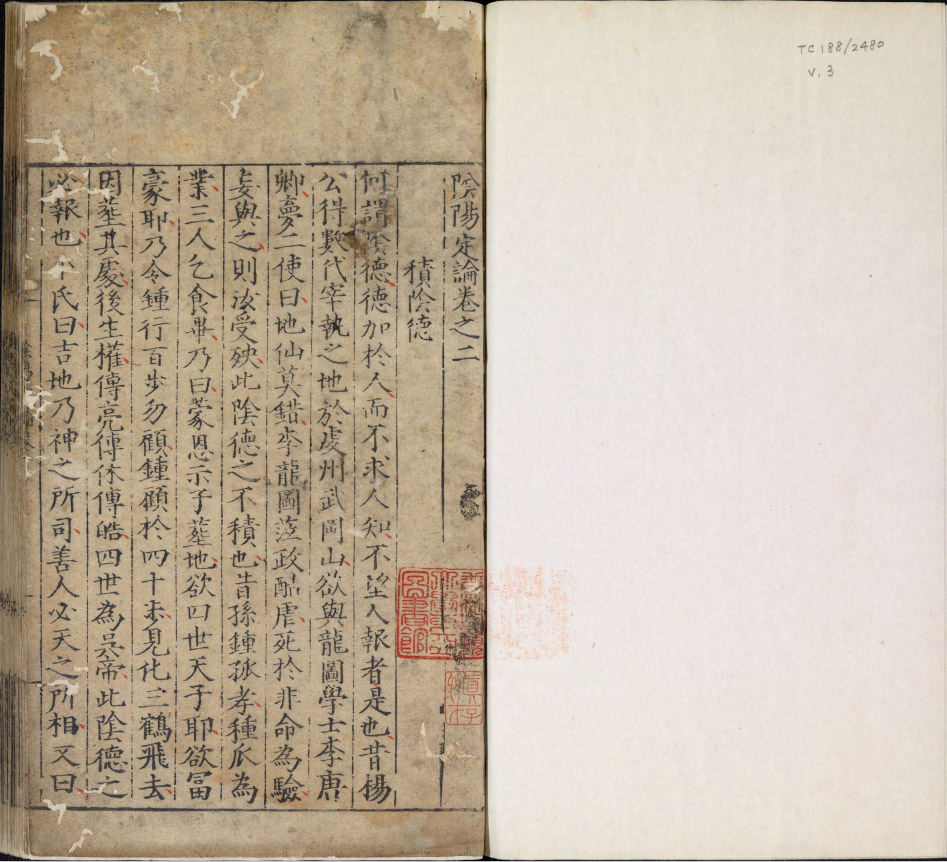 TC 188/2480
V. 3
陰陽定論卷之二
積陰德
何謂陰德德加於人而不求人知不望人報者是也昔楊
公得數代宰執之地於虔州武岡山欲與龍圖學士李唐
卿夢二使曰地仙莫錯李龍圖蒞政酷虐死於非命為驗
妄與之則汝受殃此陰德之不積也昔孫鍾孤孝種瓜為
業三人乞食畢乃曰蒙恩示子塟地欲四世天子耶欲富
豪耶乃令鍾行百步勿顧鍾顧於四十步見化三鶴飛去
因塟其處後生權傳亮傳休傳皓四世為吳帝此陰德之
必報也卞氏曰吉地乃神之所司善人必天之所相又曰